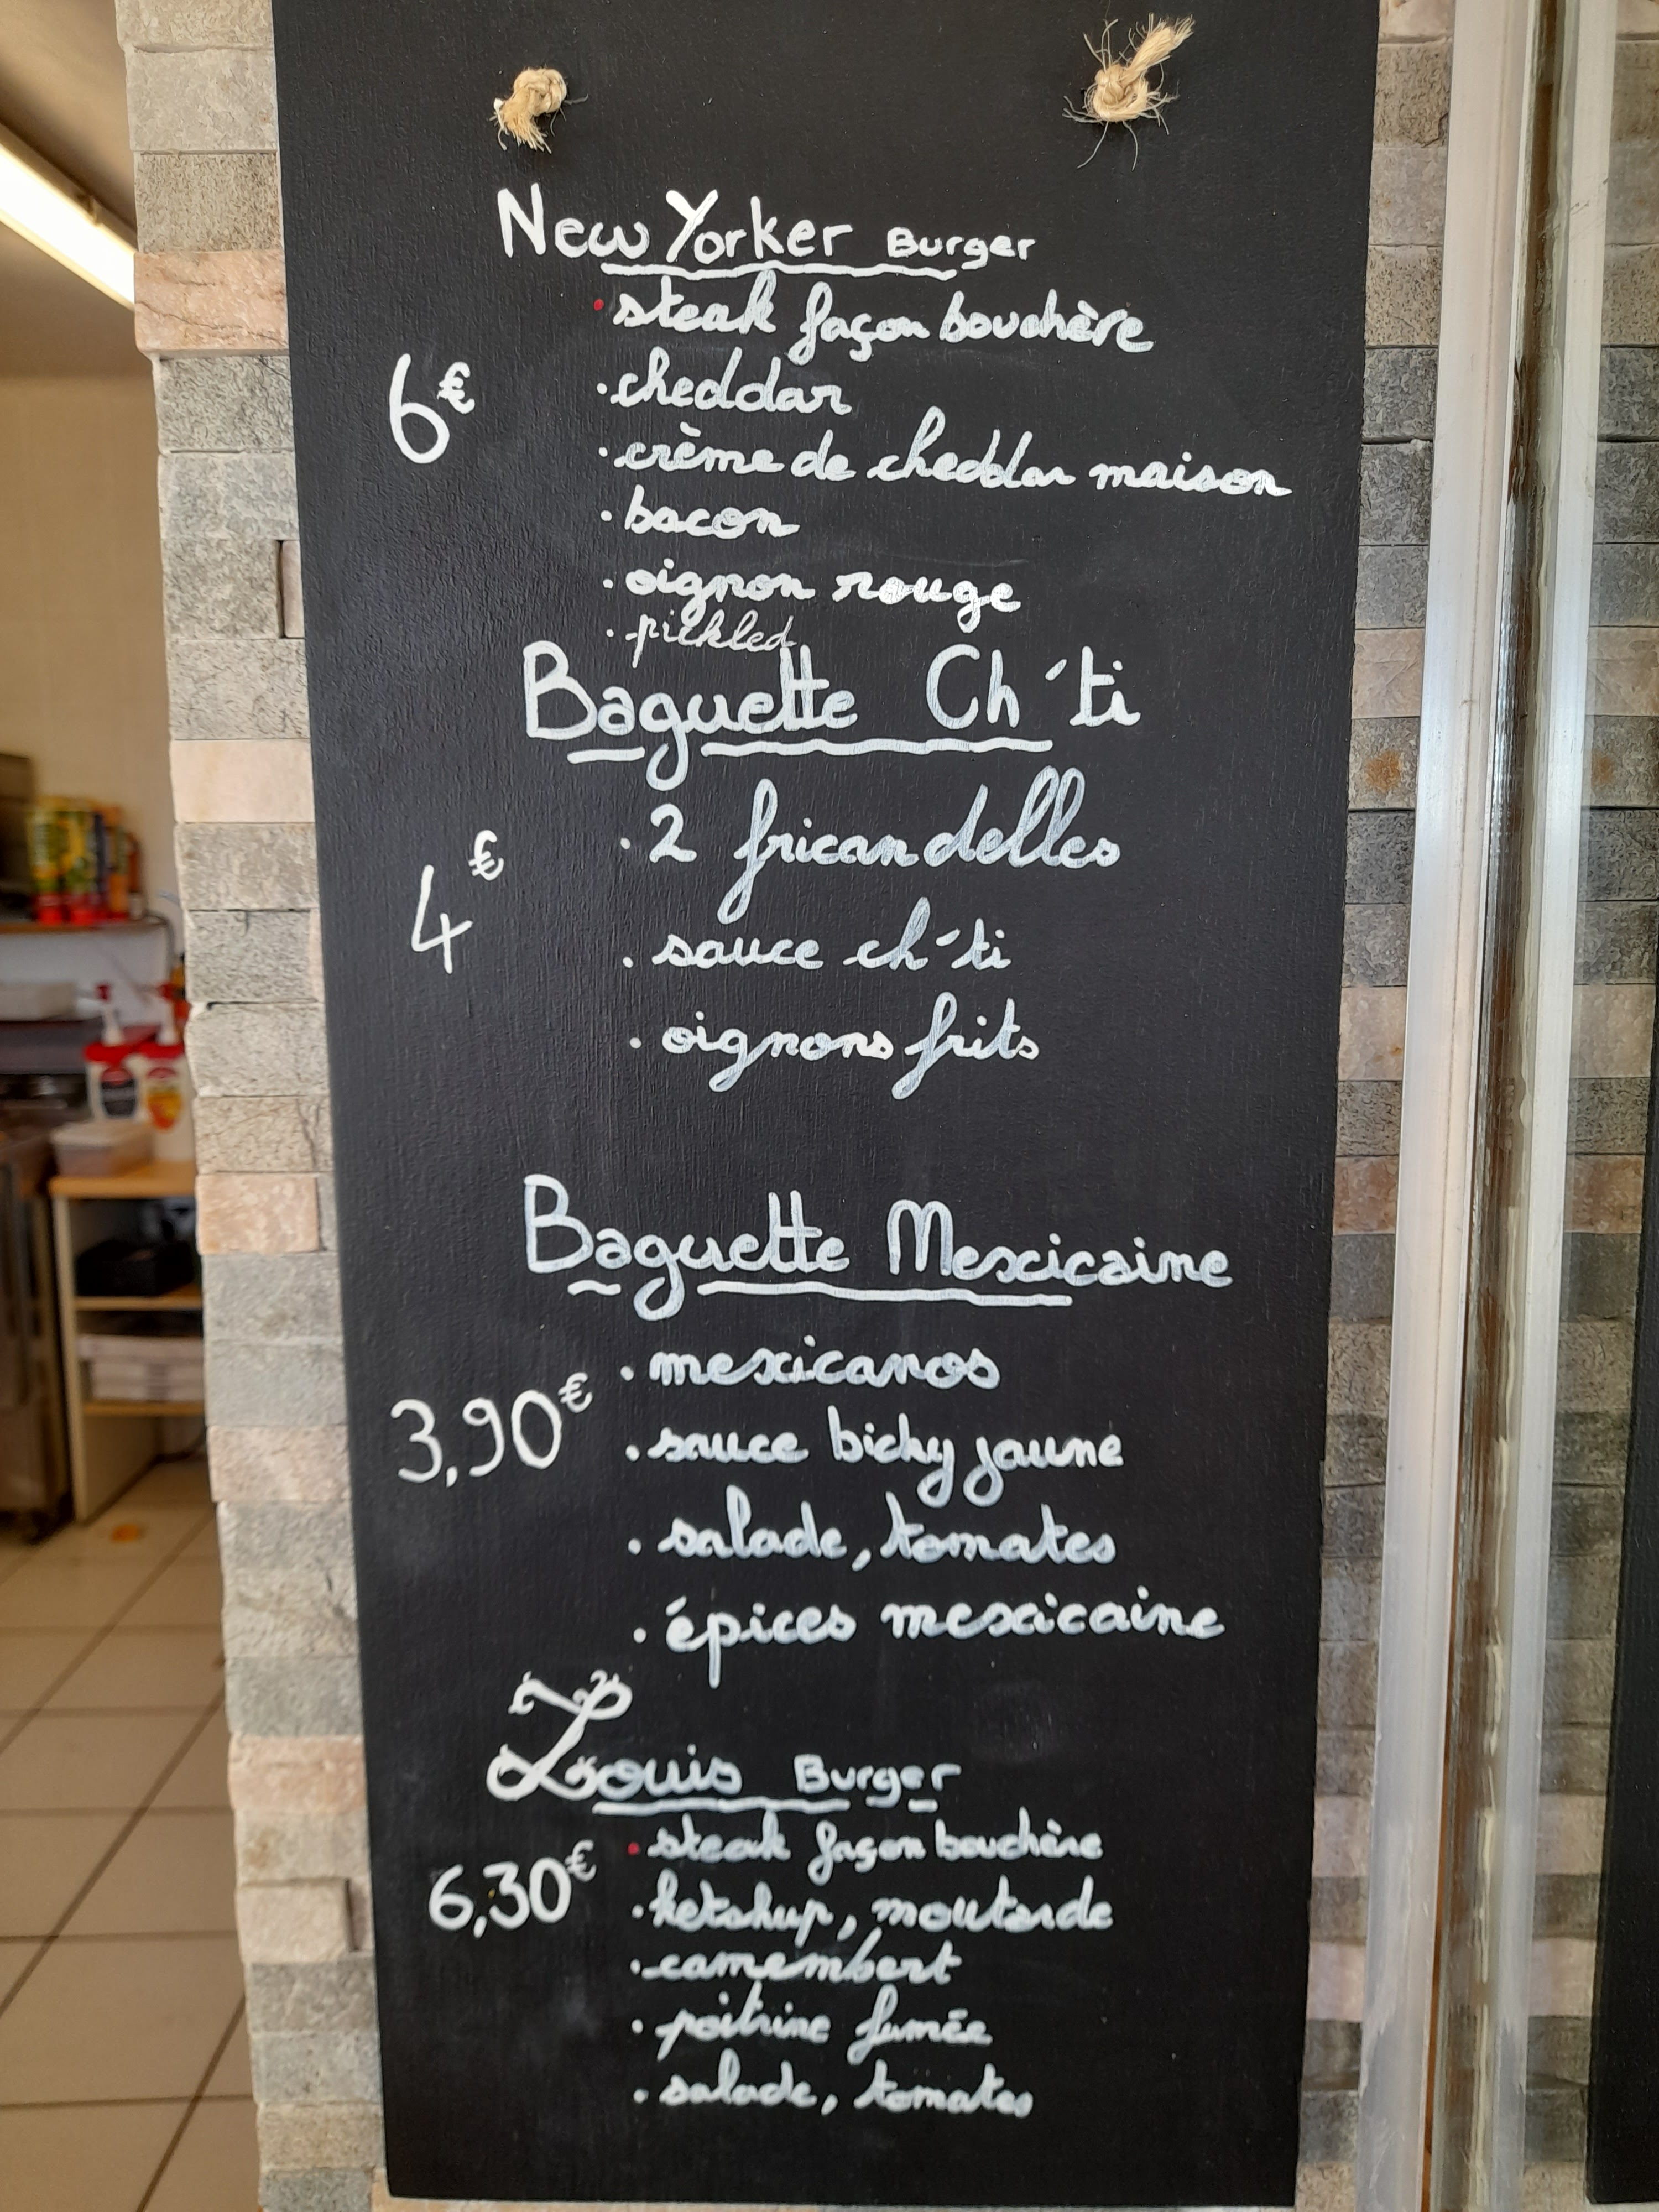 New Yorker Burger
• steak façon bouchère
6€
• cheddar
• crème de cheddar maison
• bacon
• oignon rouge
• pickled
Baguette Ch'ti
• 2 fricandelles
4€
• sauce ch'ti
• oignons frits
Baguette Mexicaine
• mexicanos
3,90€
• sauce bicky jaune
• salade, tomates
• épices mexicaine
Louis Burger
• steak façon bouchère
6,30€
• ketchup, moutarde
• camembert
• poitrine fumée
• salade, tomates